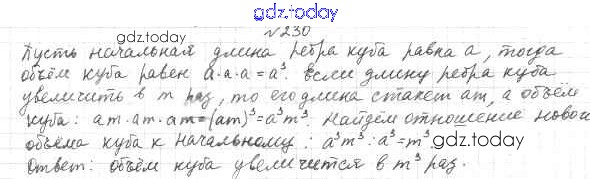 gdz.today
№230
gdz.today
Пусть начальная длина ребра куба равна a, тогда
объём куба равен a·a·a=a³. Если длину ребра куба
увеличить в m раз, то его длина станет am, а объём
куба: am·am·am=(am)³=a³m³. Найдём отношение новой
объёма куба к начальному: a³m³:a³=m³.
Ответ: объём куба увеличится в m³ раз.
gdz.today